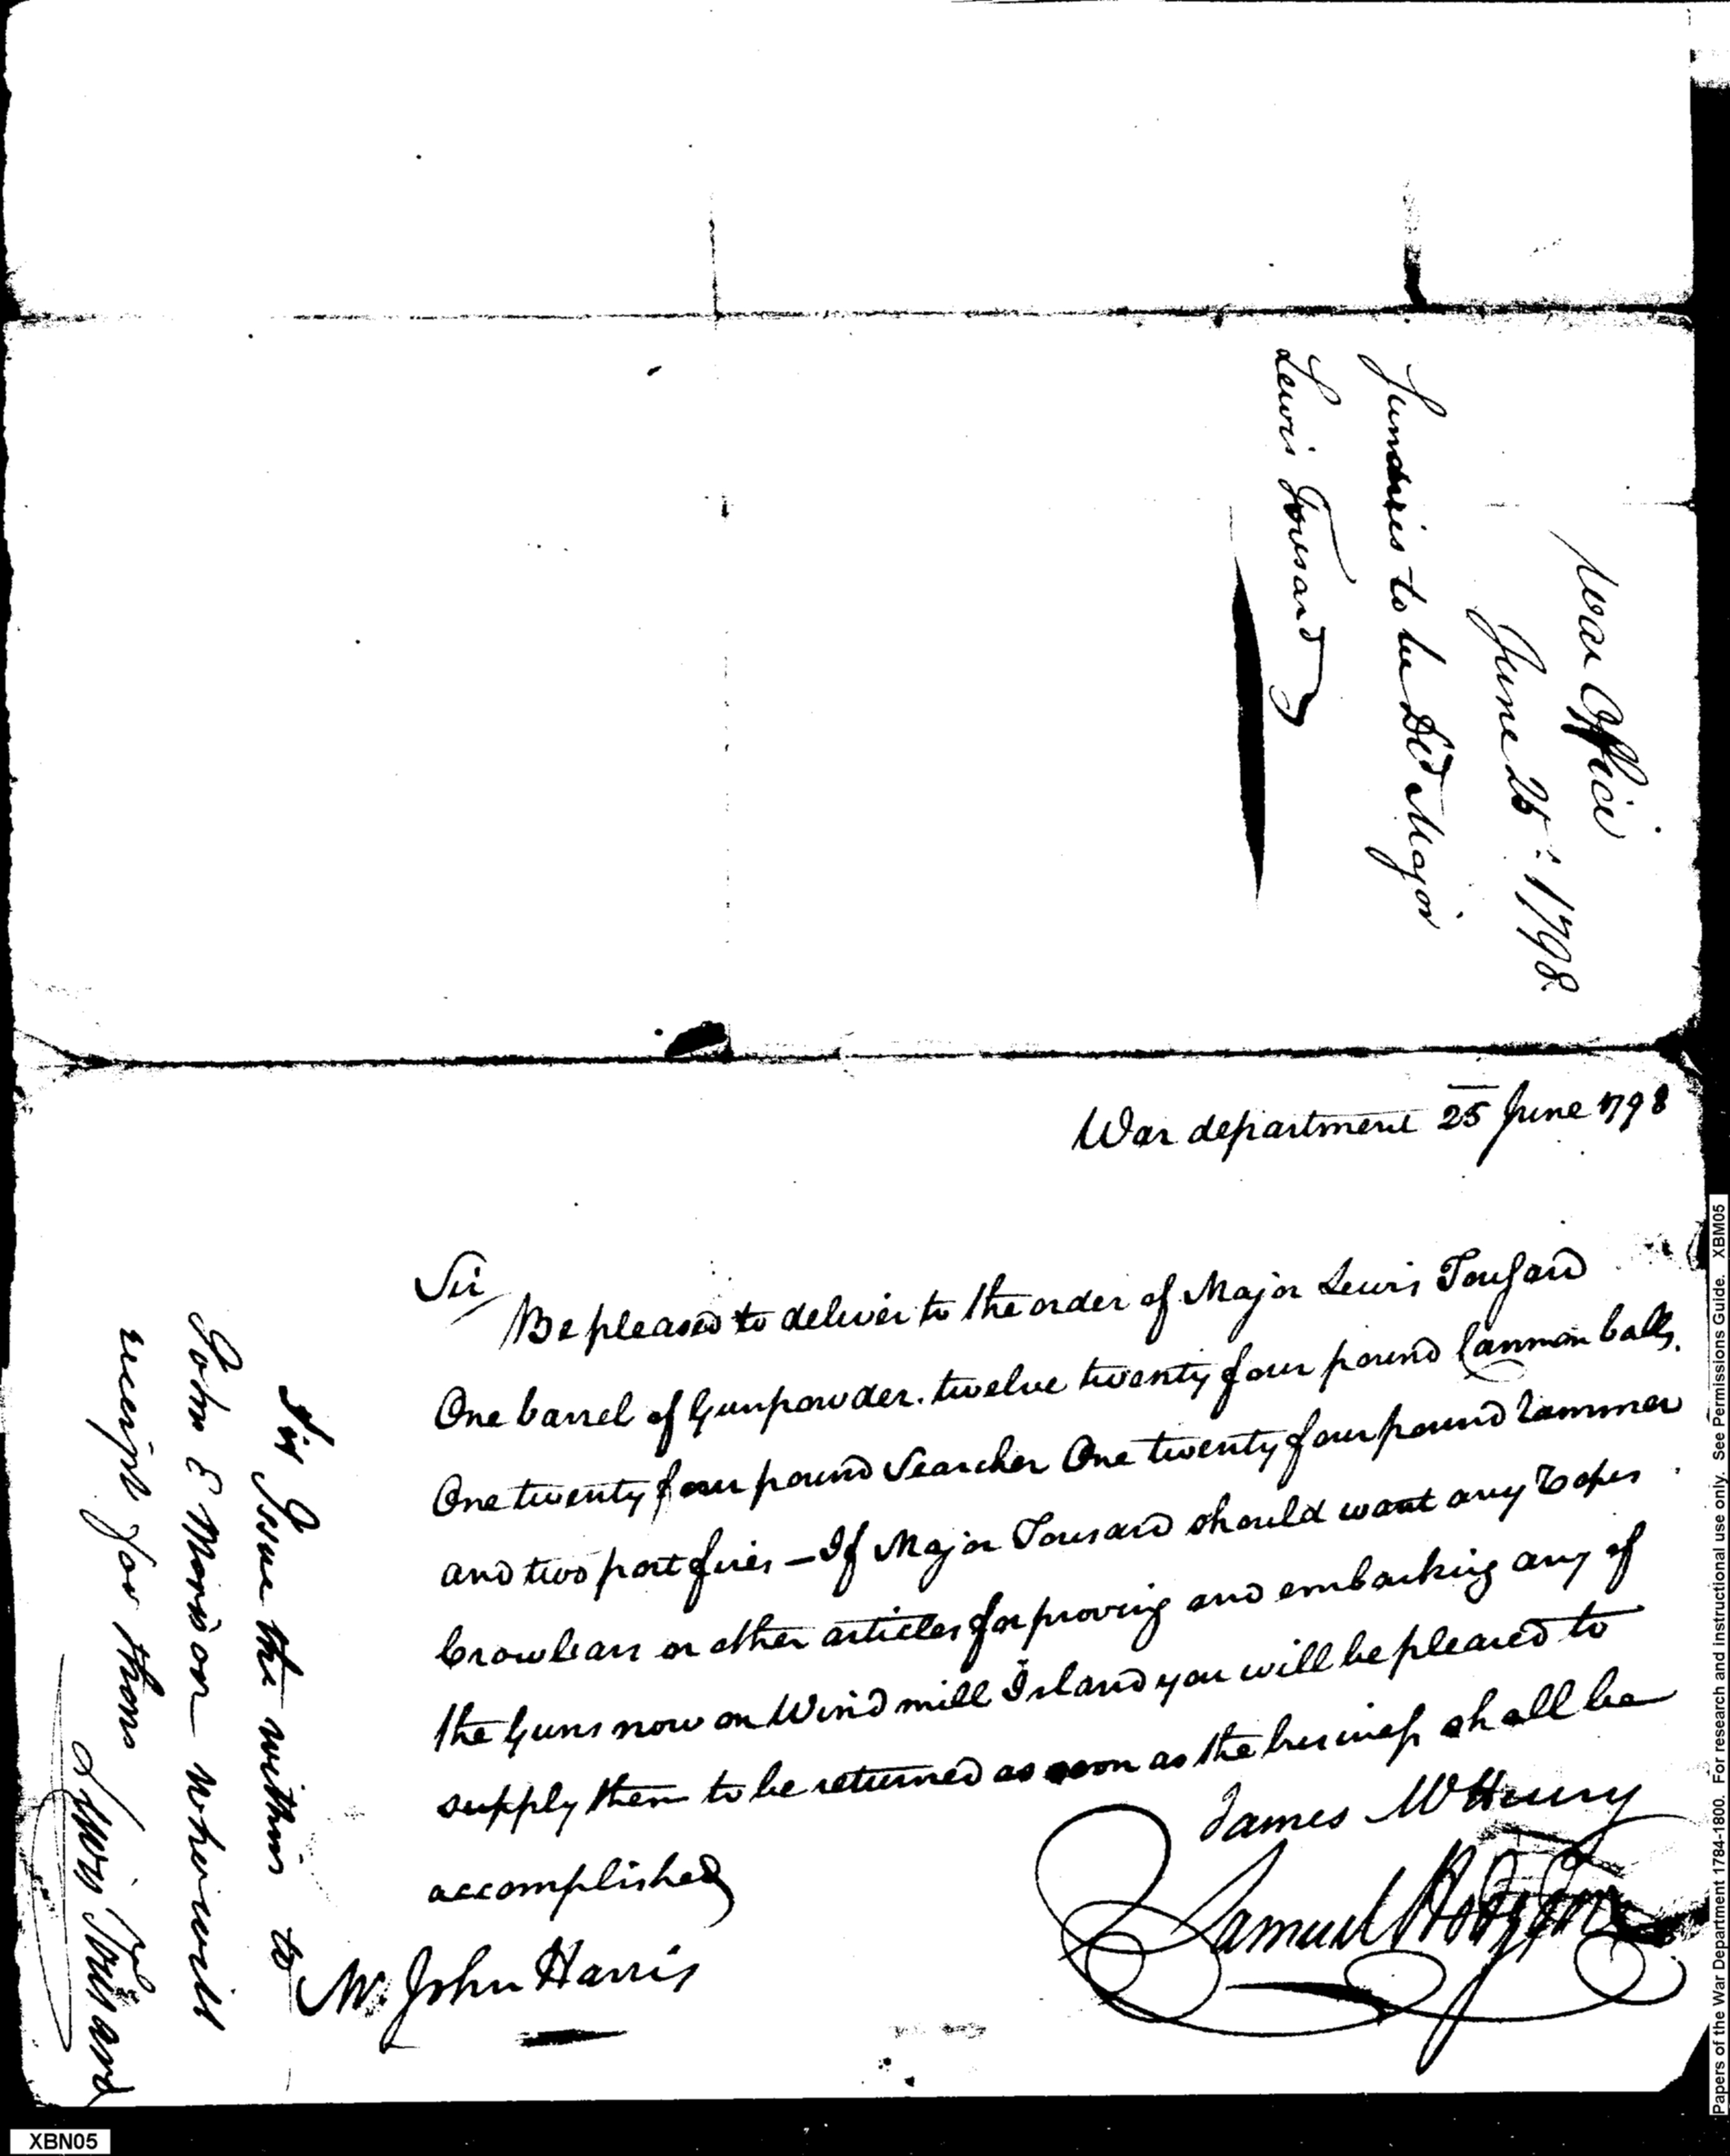 War Office
June 25: 1798.
Sundries to be Dld Major
Lewis Tousard
War department 25 June 1798
Sir
Be pleased to deliver to the order of Major Lewis Tousard
One barrel of Gunpowder. twelve twenty four pound Cannon balls.
One twenty four pound Searcher One twenty four pound rammer
and two portfires – If Major Tousard should want any Ropes
Crowbars or other articles for proving and embarking any of
the Guns now on Wind mill Island you will be pleased to
supply them to be returned as soon as the business shall be
accomplished
James McHenry
Samuel Hodgdon
Mr. John Harris
Sir Issue the within to
John E Morrison who will
receipt for them
Lewis Tousard
Papers of the War Department 1784-1800. For research and instructional use only. See Permissions Guide. XBM05
XBN05